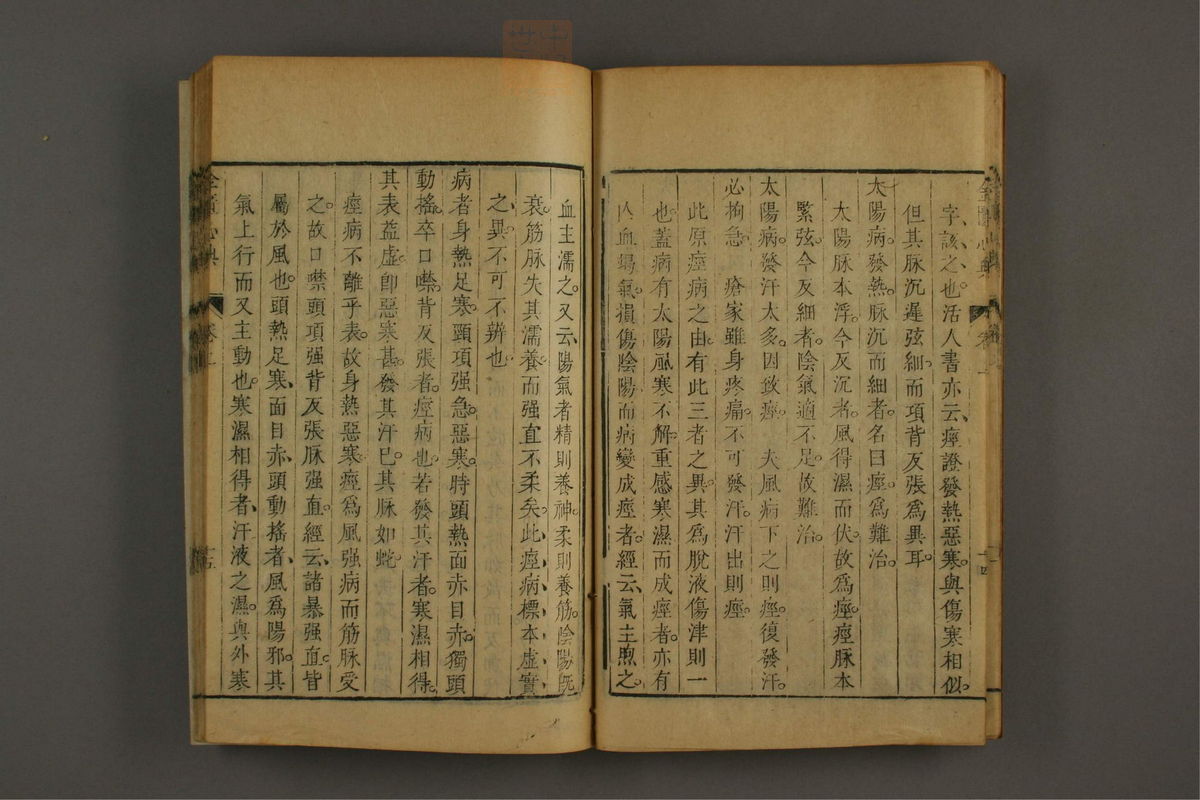 字該之也活人書亦云痙證發熱惡寒與傷寒相似
但其脉沉遲弦細而項背反張爲異耳
太陽病發熱脉沉而細者名曰痙爲難治
太陽脉本浮今反沉者風得濕而伏故爲痙痙脉本
緊弦今反細者陰氣適不足故難治
太陽病發汗太多因致痙 夫風病下之則痙復發汗
必拘急 瘡家雖身疼痛不可發汗汗出則痙
此原痙病之由有此三者之異其爲脫液傷津則一
也蓋病有太陽風寒不解重感寒濕而成痙者亦有
血竭氣損傷陰陽而病變成痙者經云氣主煦之
血主濡之又云陽氣者精則養神柔則養筋陰陽既
衰筋脉失其濡養而强直不柔矣此痙病標本虛實
之異不可不辨也
病者身熱足寒頸項强急惡寒時頭熱面赤目赤獨頭
動搖卒口噤背反張者痙病也若發其汗者寒濕相得
其表益虛卽惡寒甚發其汗已其脉如蛇
痙病不離乎表故身熱惡寒痙爲風强病而筋脉受
之故口噤頭項强背反張脉强直經云諸暴强直皆
屬於風也頭熱足寒面目赤頭動搖者風爲陽邪其
氣上行而又主動也寒濕相得者汗液之濕與外寒